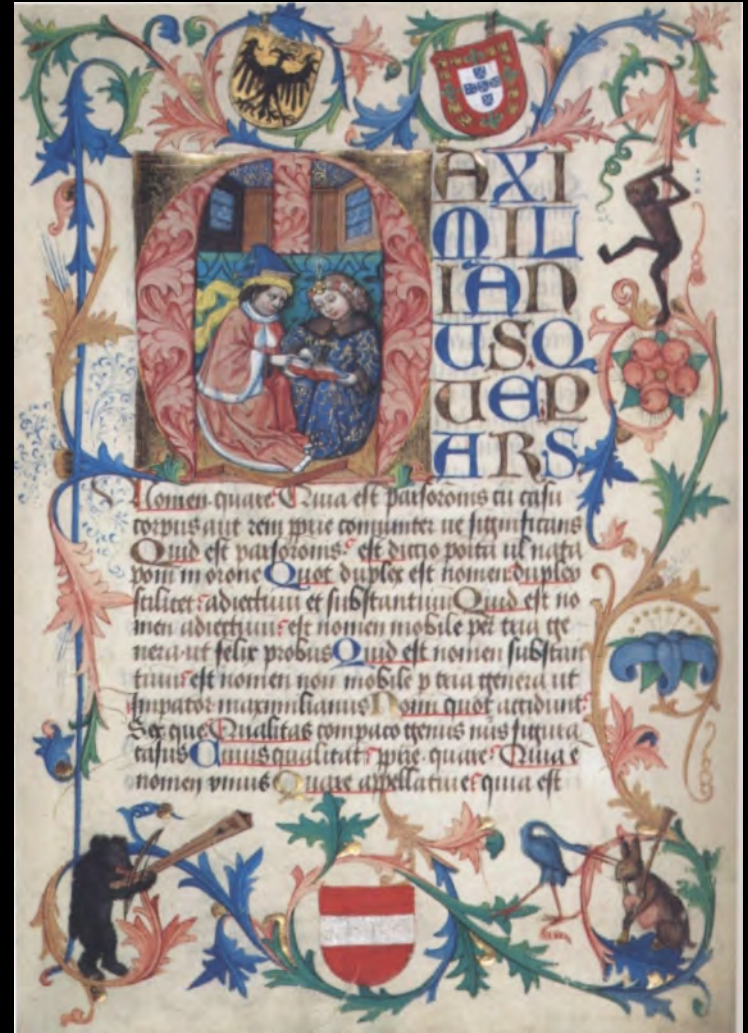 MAXI
MIL
IAN
US.Q
UE.P
ARS
Nomen quare Quia est parsoronis cu casu
corpus aut rem significans
Quid est parsoronis est
Quot duplex est nomen duplex
scilicet adiectiuu et substantiuu Quid est no
men adiectiuu est nomen mobile per tria ge
nera ut felix probus Quid est nomen substan
tiuu est nomen non mobile p tria genera ut
Impator maximilianus Nomi quot accidunt
Sex que Qualitas compaco genus nus figura
casus Cuius qualitat quare Quia e
nomen vnius Quare appellatiue quia est